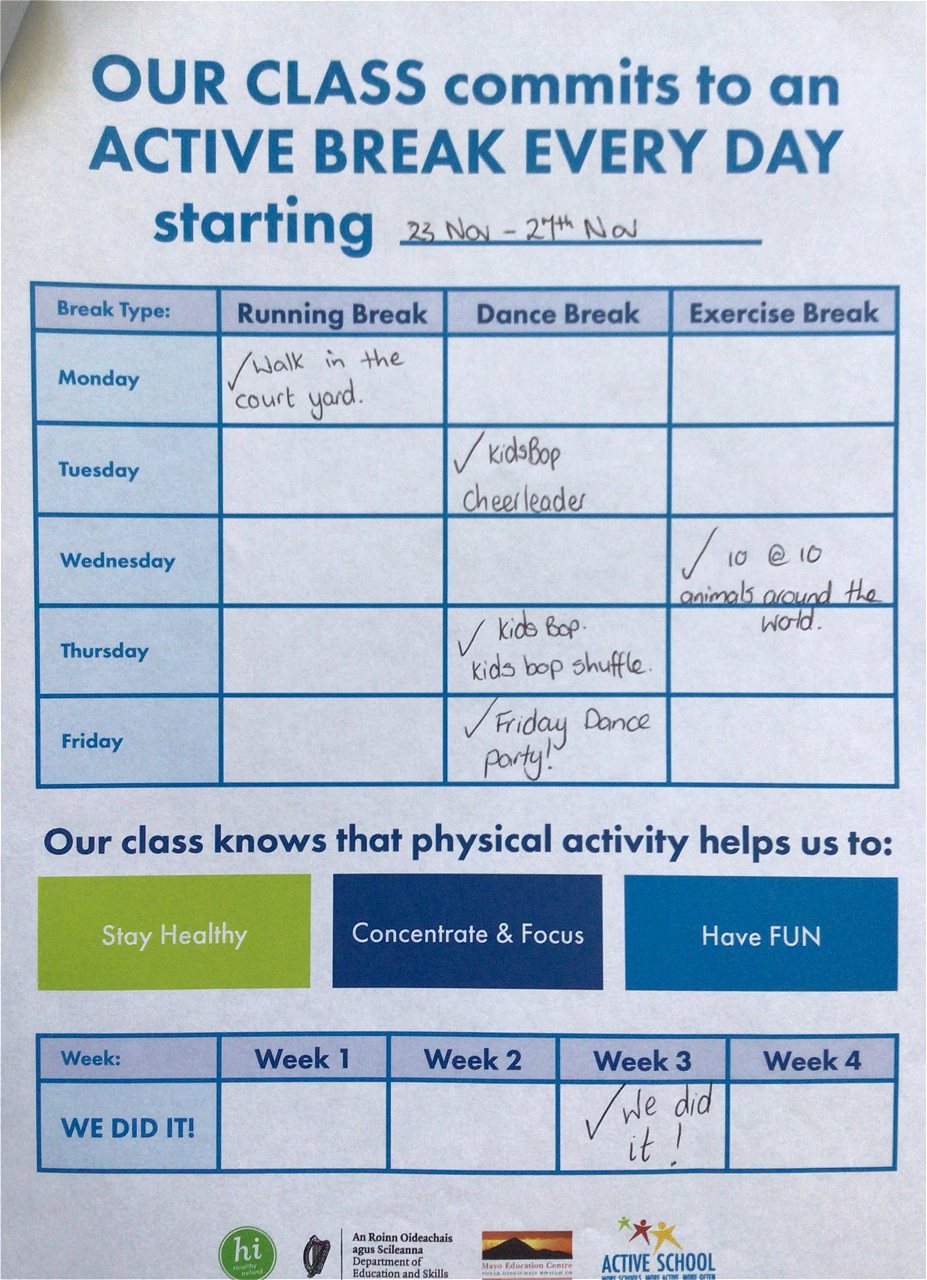 OUR CLASS commits to an
ACTIVE BREAK EVERY DAY
starting 23 Nov - 27th Nov
Break Type: Running Break Dance Break Exercise Break
Monday ✓ Walk in the
court yard.
Tuesday ✓ KidsBop
Cheerleader
Wednesday ✓ 10 @ 10
animals around the
world.
Thursday ✓ Kids Bop.
Kids bop shuffle.
Friday ✓ Friday Dance
Party!
Our class knows that physical activity helps us to:
Stay Healthy Concentrate & Focus Have FUN
Week: Week 1 Week 2 Week 3 Week 4
WE DID IT! ✓ We did
it!
hi
Healthy
Ireland
An Roinn Oideachais
agus Scileanna
Department of
Education and Skills
Mayo Education Centre
ACTIVE SCHOOL
MORE SCHOOLS MORE ACTIVE MORE OFTEN